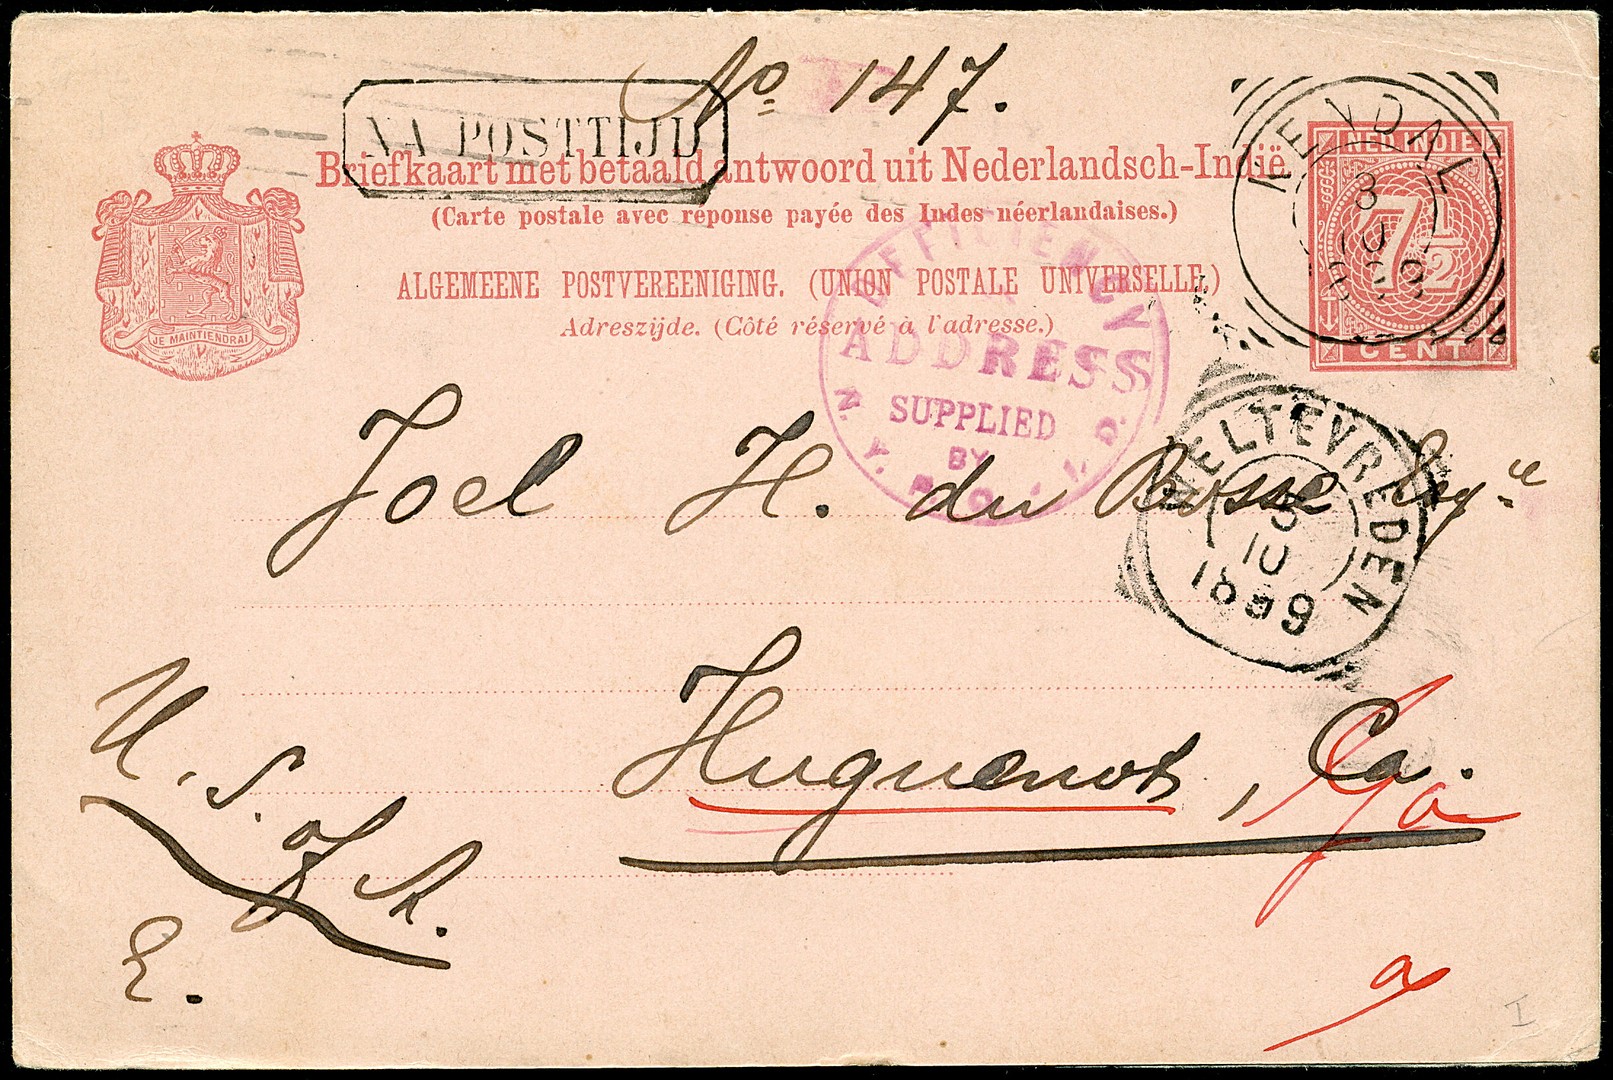 No 147.
NA POSTTIJD
Briefkaart met betaald antwoord uit Nederlandsch-Indië
(Carte postale avec réponse payée des Indes néerlandaises.)
ALGEMEENE POSTVEREENIGING. (UNION POSTALE UNIVERSELLE.)
Adreszijde. (Côté réservé à l'adresse.)
JE MAINTIENDRAI
NED. INDIE
7½
CENT
KENDAL
3
10
DEFICIENCY
ADDRESS
SUPPLIED
BY
N. Y. P. O. I. D.
WELTEVREDEN
5
10
1899
Joel H. du Bosse Esq.re
Huguenot, Ca.
Ga
U. S. of A.
E.
a
I